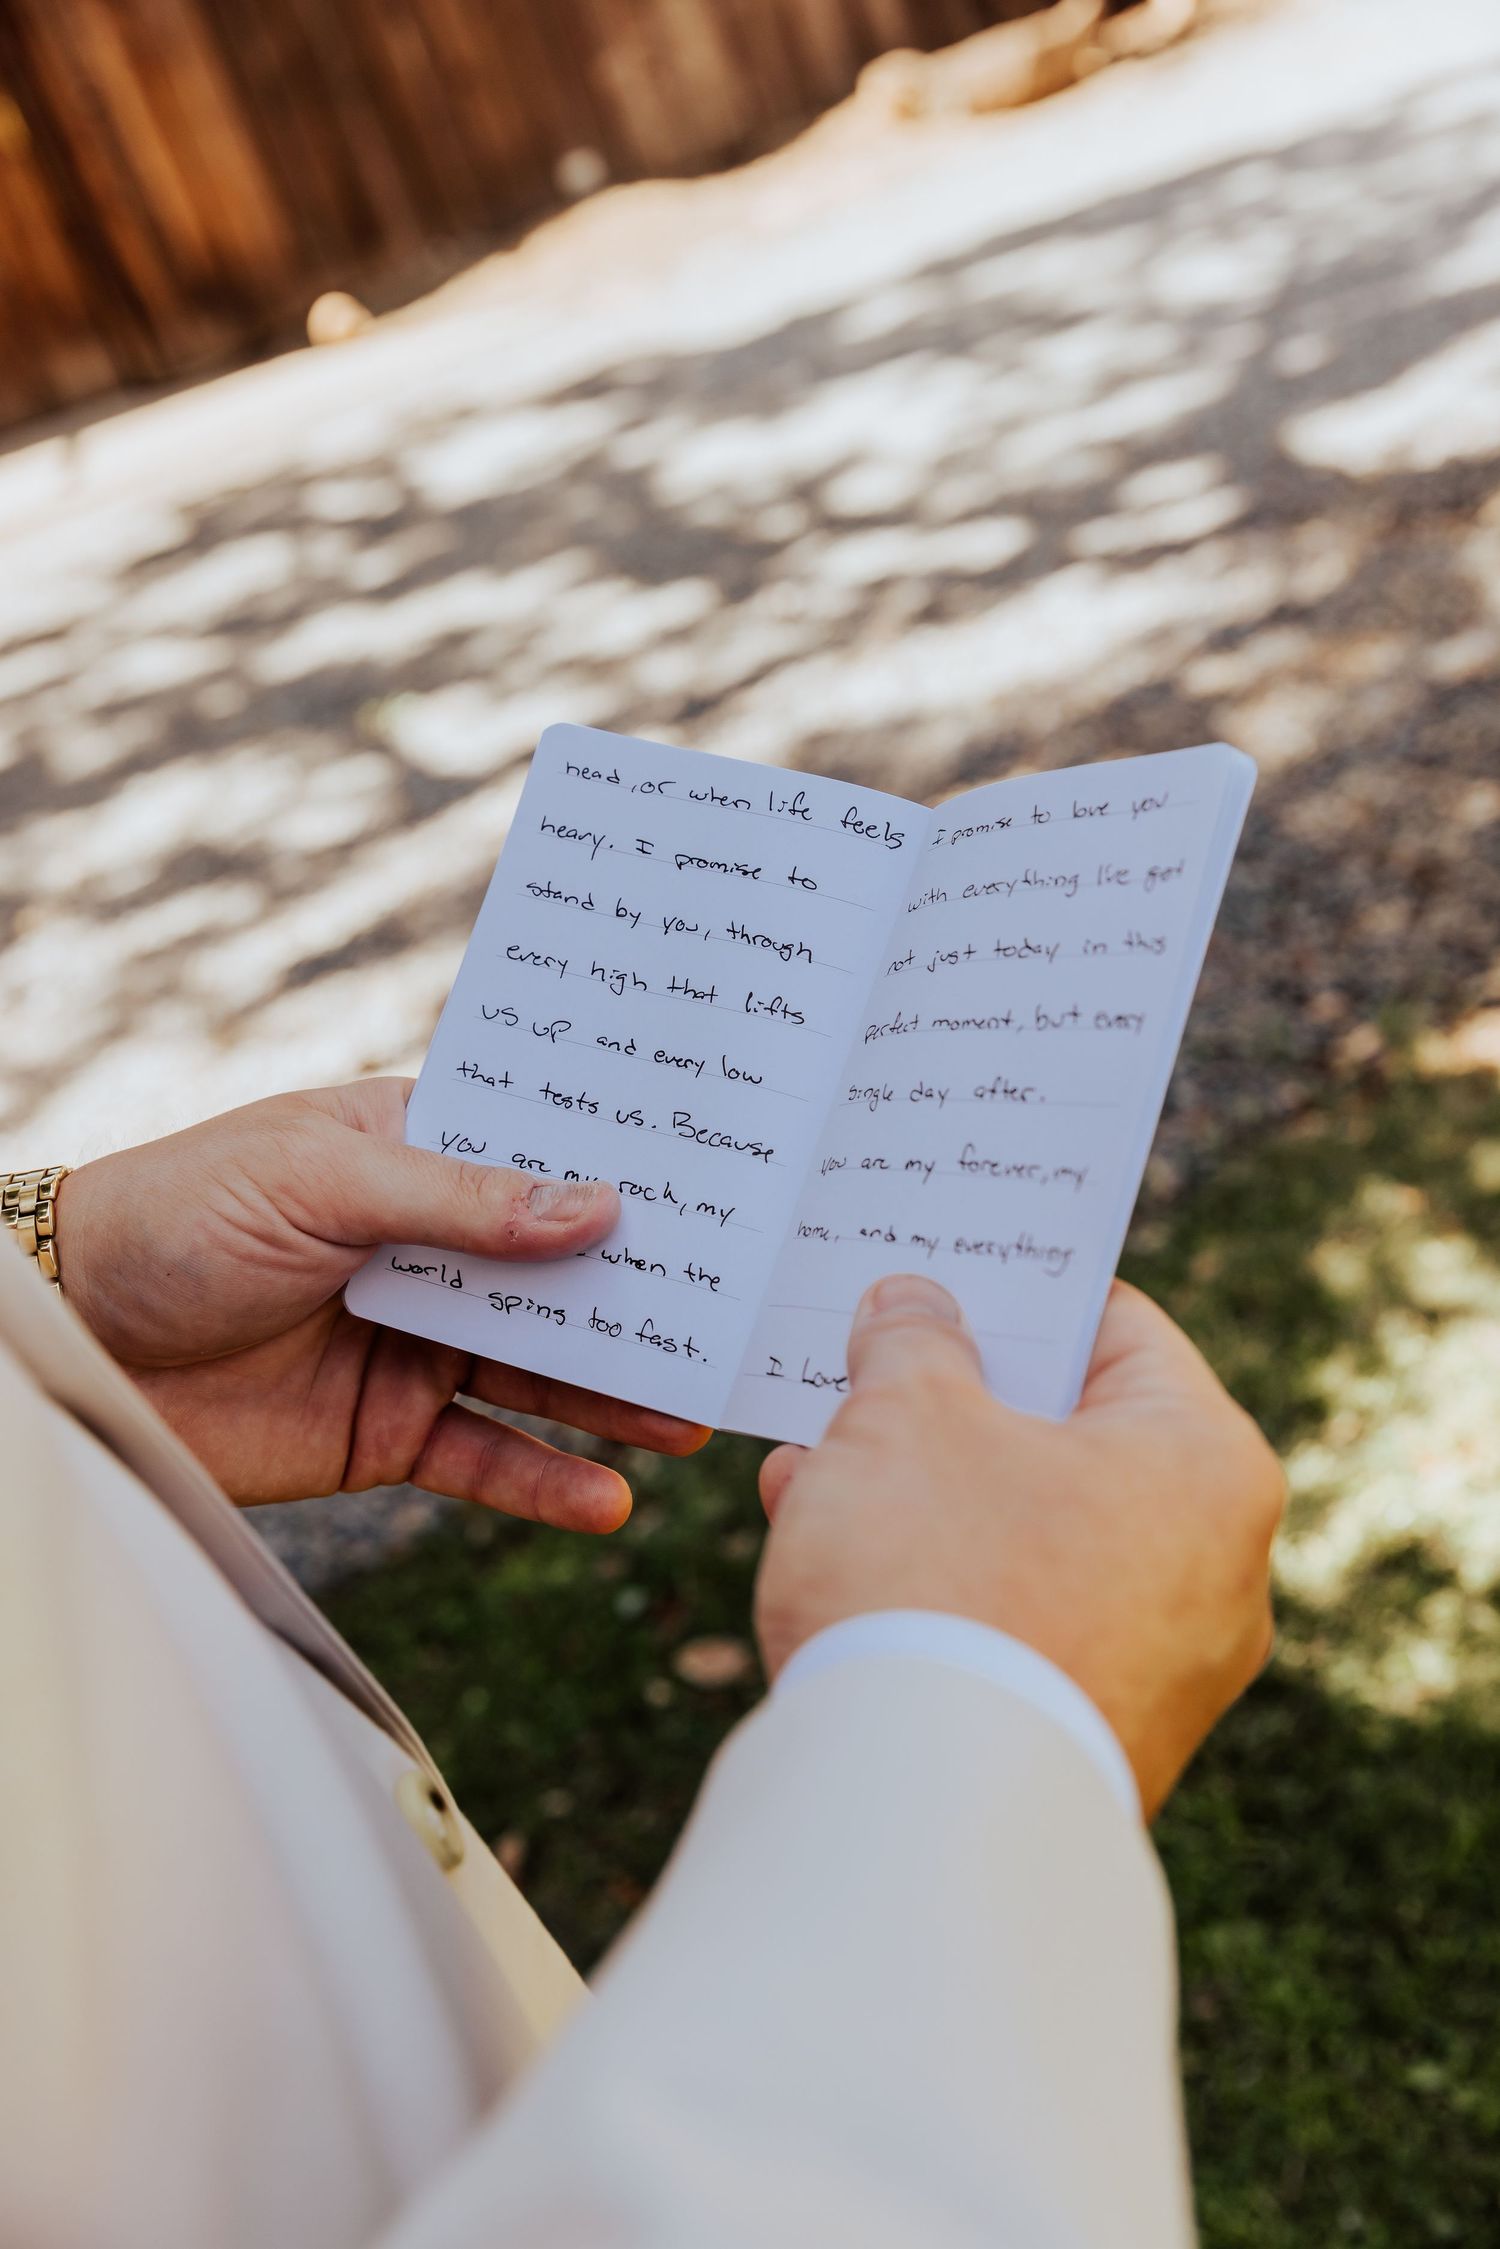 head, or when life feels
heavy. I promise to
stand by you, through
every high that lifts
us up and every low
that tests us. Because
you are my rock, my
when the
world spins too fast.
I promise to love you
with everything I've got
not just today in this
perfect moment, but every
single day after.
You are my forever, my
home, and my everything
I Love